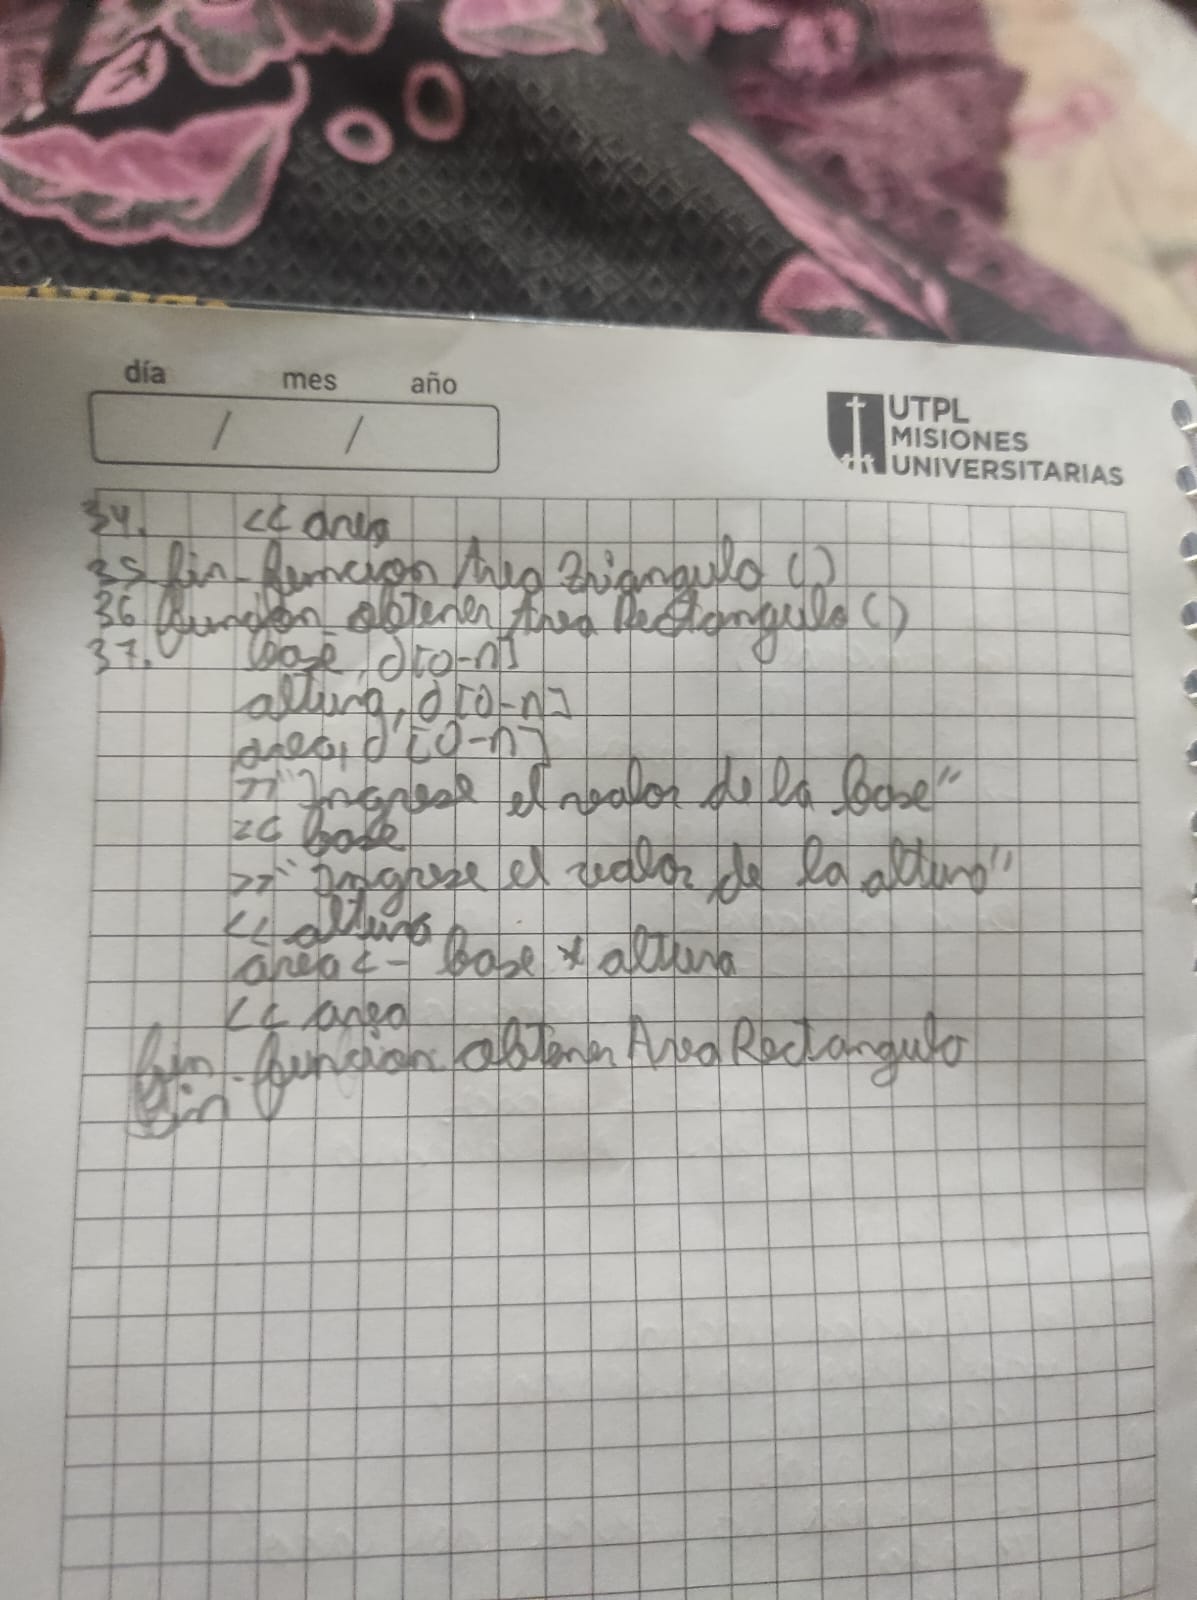 día mes año
/ /
UTPL
MISIONES
UNIVERSITARIAS
34. << area
35 fin-funcion Area Triangulo ()
36 función obtener Area Rectangulo ()
37. base, d[0-n]
altura, d[0-n]
area, d[0-n]
>>"Ingrese el valor de la base"
<< base
>>"Ingrese el valor de la altura"
<< altura
area <- base * altura
<< area
fin-funcion obtener Area Rectangulo
fin